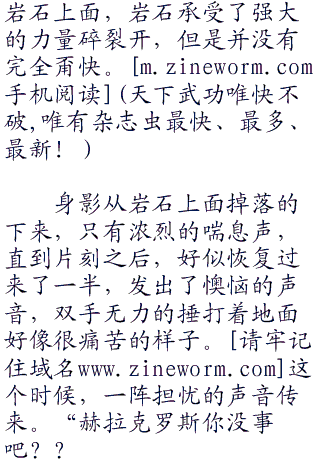 岩石上面，岩石承受了强大
的力量碎裂开，但是并没有
完全甭快。[m.zineworm.com
手机阅读](天下武功唯快不
破,唯有杂志虫最快、最多、
最新！)
身影从岩石上面掉落的
下来，只有浓烈的喘息声，
直到片刻之后，好似恢复过
来了一半，发出了懊恼的声
音，双手无力的捶打着地面
好像很痛苦的样子。[请牢记
住域名www.zineworm.com]这
个时候，一阵担忧的声音传
来。“赫拉克罗斯你没事
吧？？